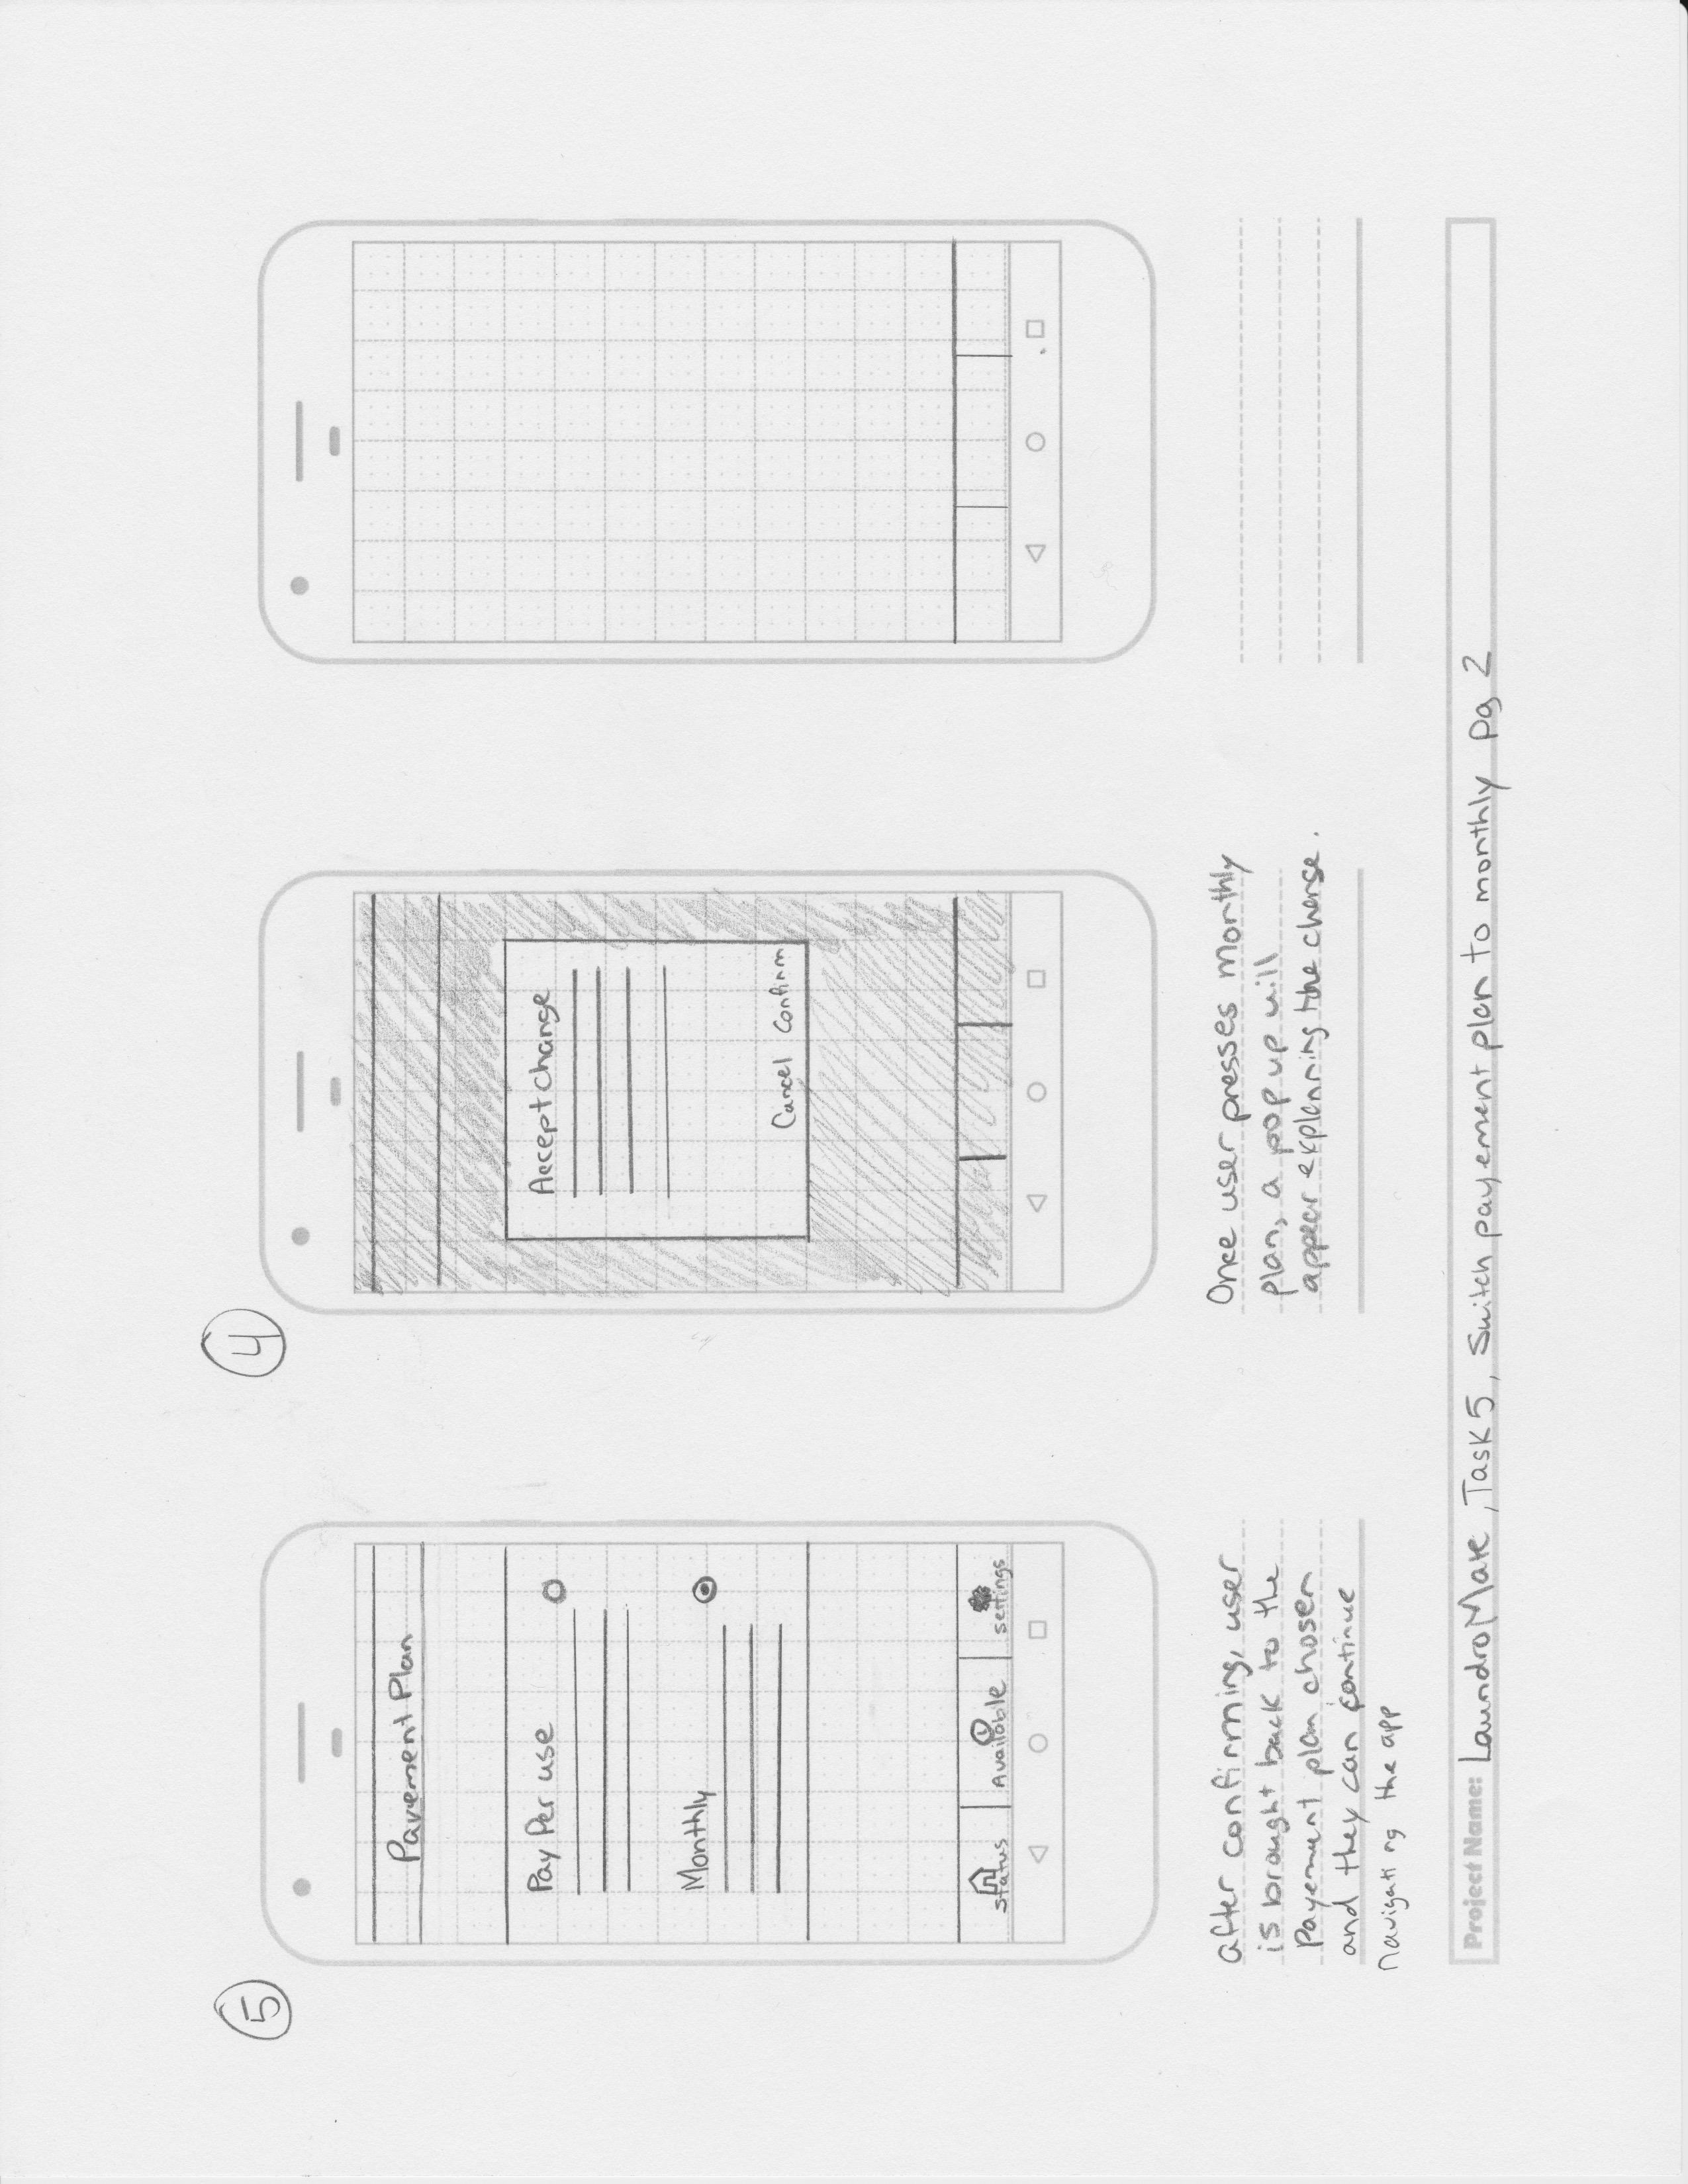 5
Payement Plan
Pay Per use
Monthly
Status
Available
Settings
after confirming, user
is brought back to the
Payement plan chosen
and they can continue
navigating the app
4
Accept change
Cancel Confirm
Once user presses monthly
plan, a pop up will
appear explanning the change.
Project Name: LaundroMate, Task 5, Switch payement plan to monthly pg 2